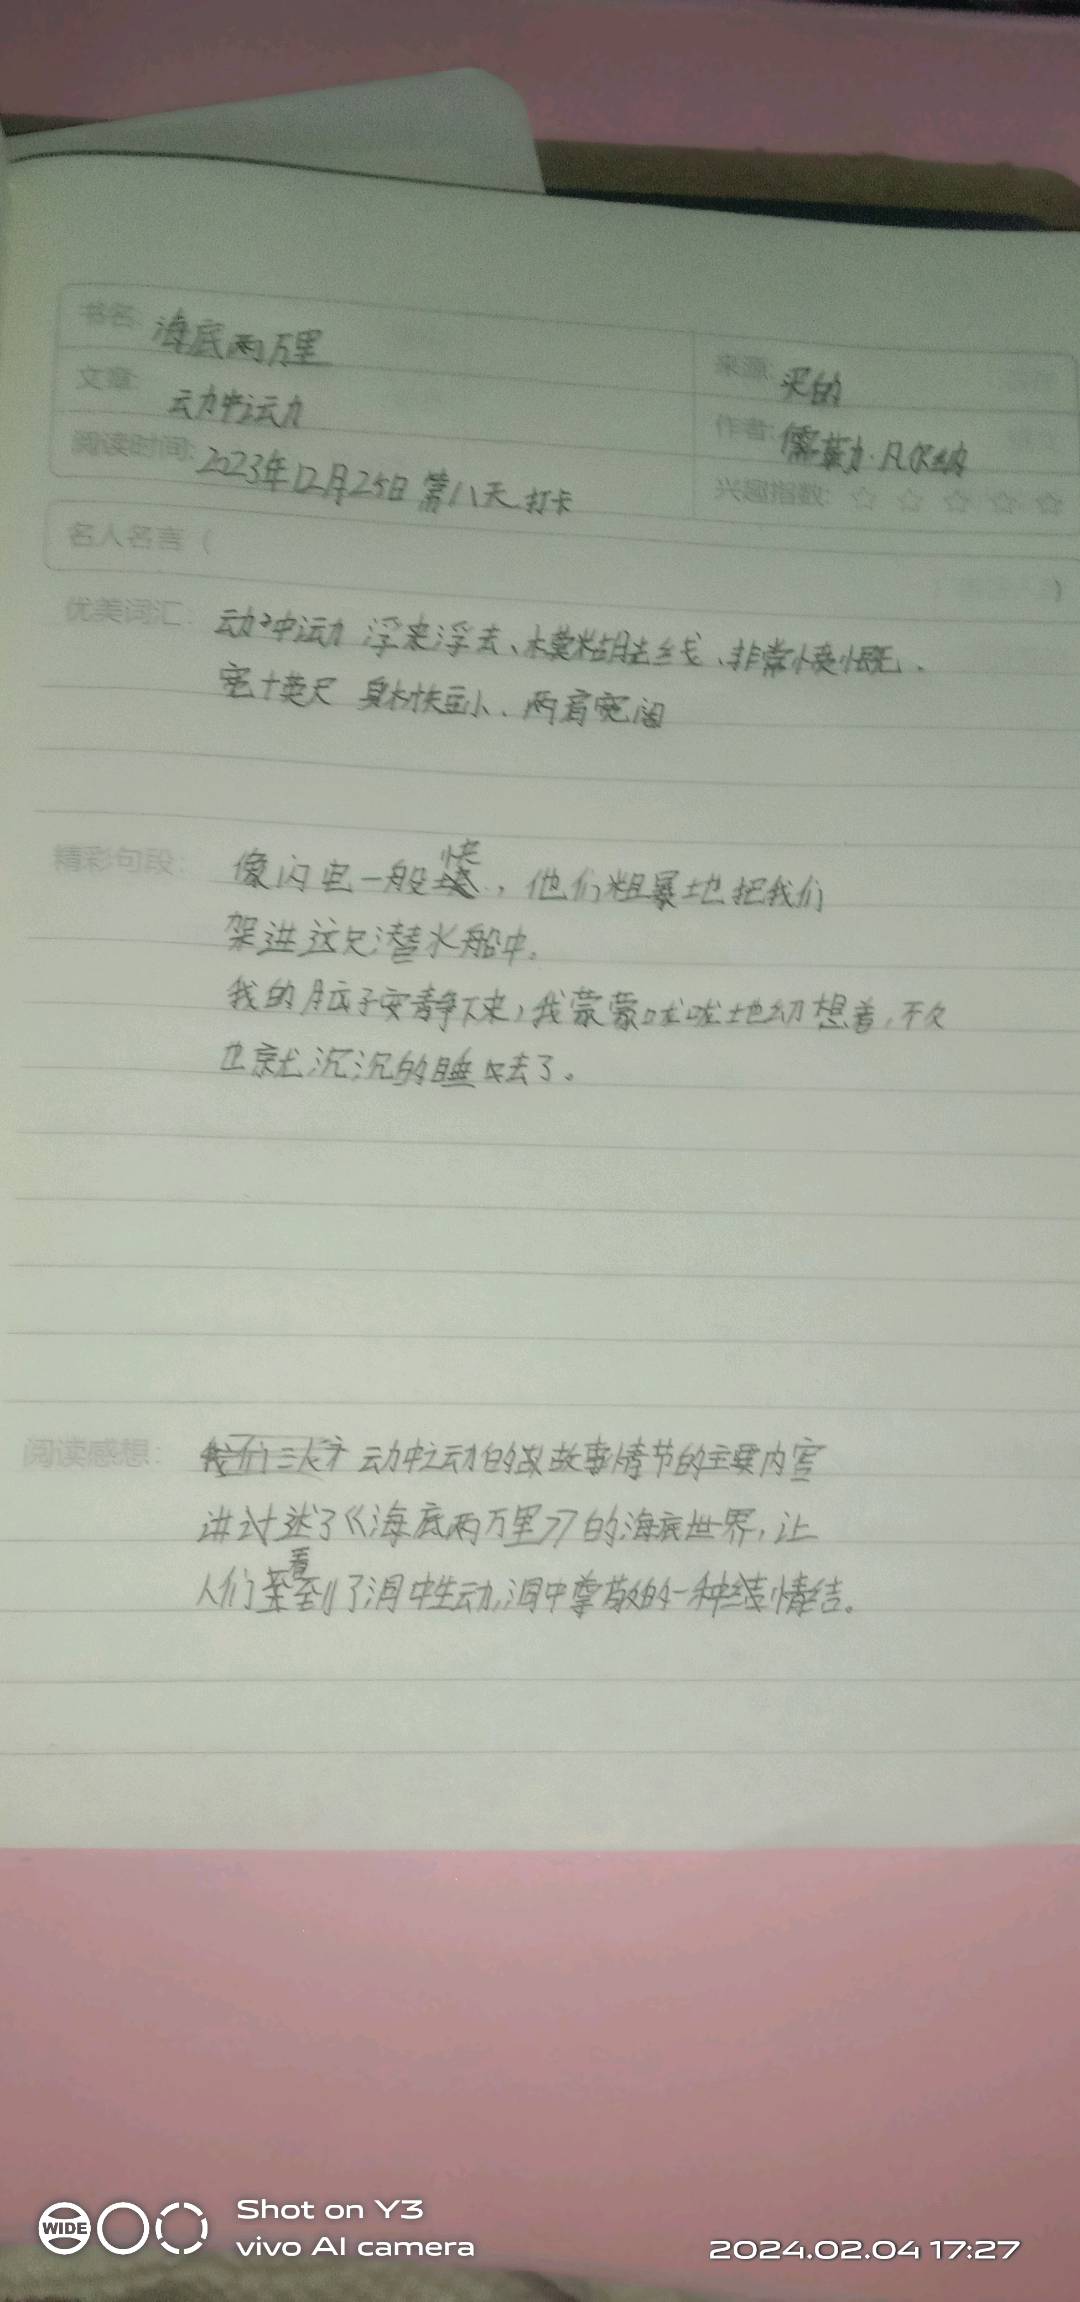 书名: 海底两万里
来源: 买的
文章: 动中运动
作者: 儒勒·凡尔纳
阅读时间: 2023年12月25日 第八天 打卡
兴趣指数: ☆ ☆ ☆ ☆ ☆
名人名言 ( )
优美词汇: 动中运动 浮来浮去、模糊 线、非常慷慨、
宽十英尺 身材 小、两肩宽阔
精彩句段: 像闪电一般快, 他们粗暴地把我们
架进这只潜水船中。
我的脑子安静下来, 我蒙蒙咙咙地幻想着, 不久
也就沉沉的睡 去了。
阅读感想: 动中运动的故事情节的主要内容
讲述了《海底两万里》的海底世界, 让
人们看到了 中生动, 中尊敬的一种 情结。
WIDE
Shot on Y3
vivo AI camera
2024.02.04 17:27